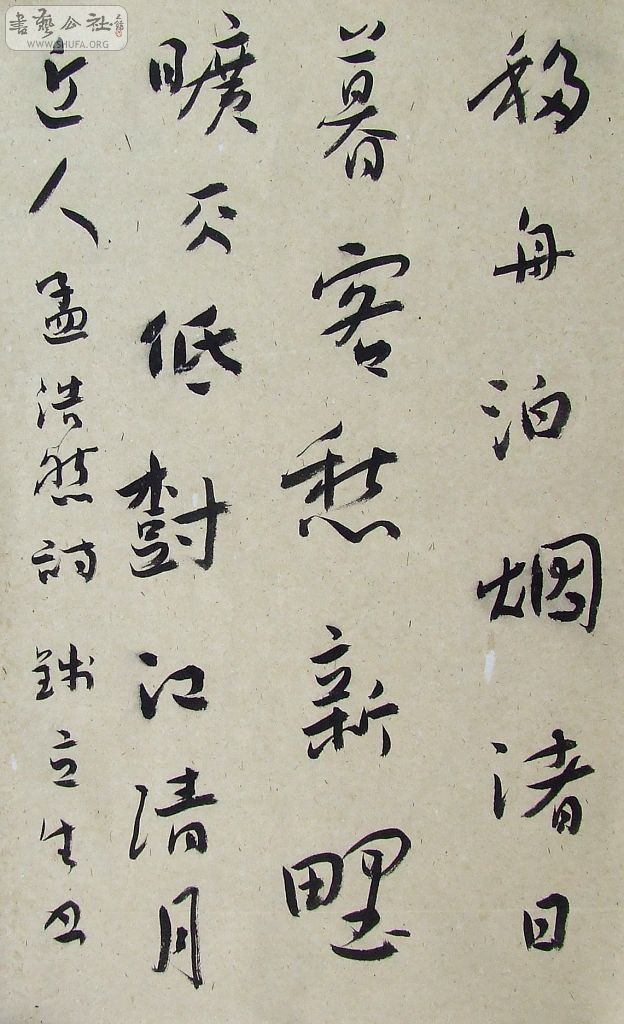 移舟泊烟渚日
暮客愁新野
曠天低樹江清月
近人孟浩然詩錢立生書
書藝公社
WWW.SHUFA.ORG